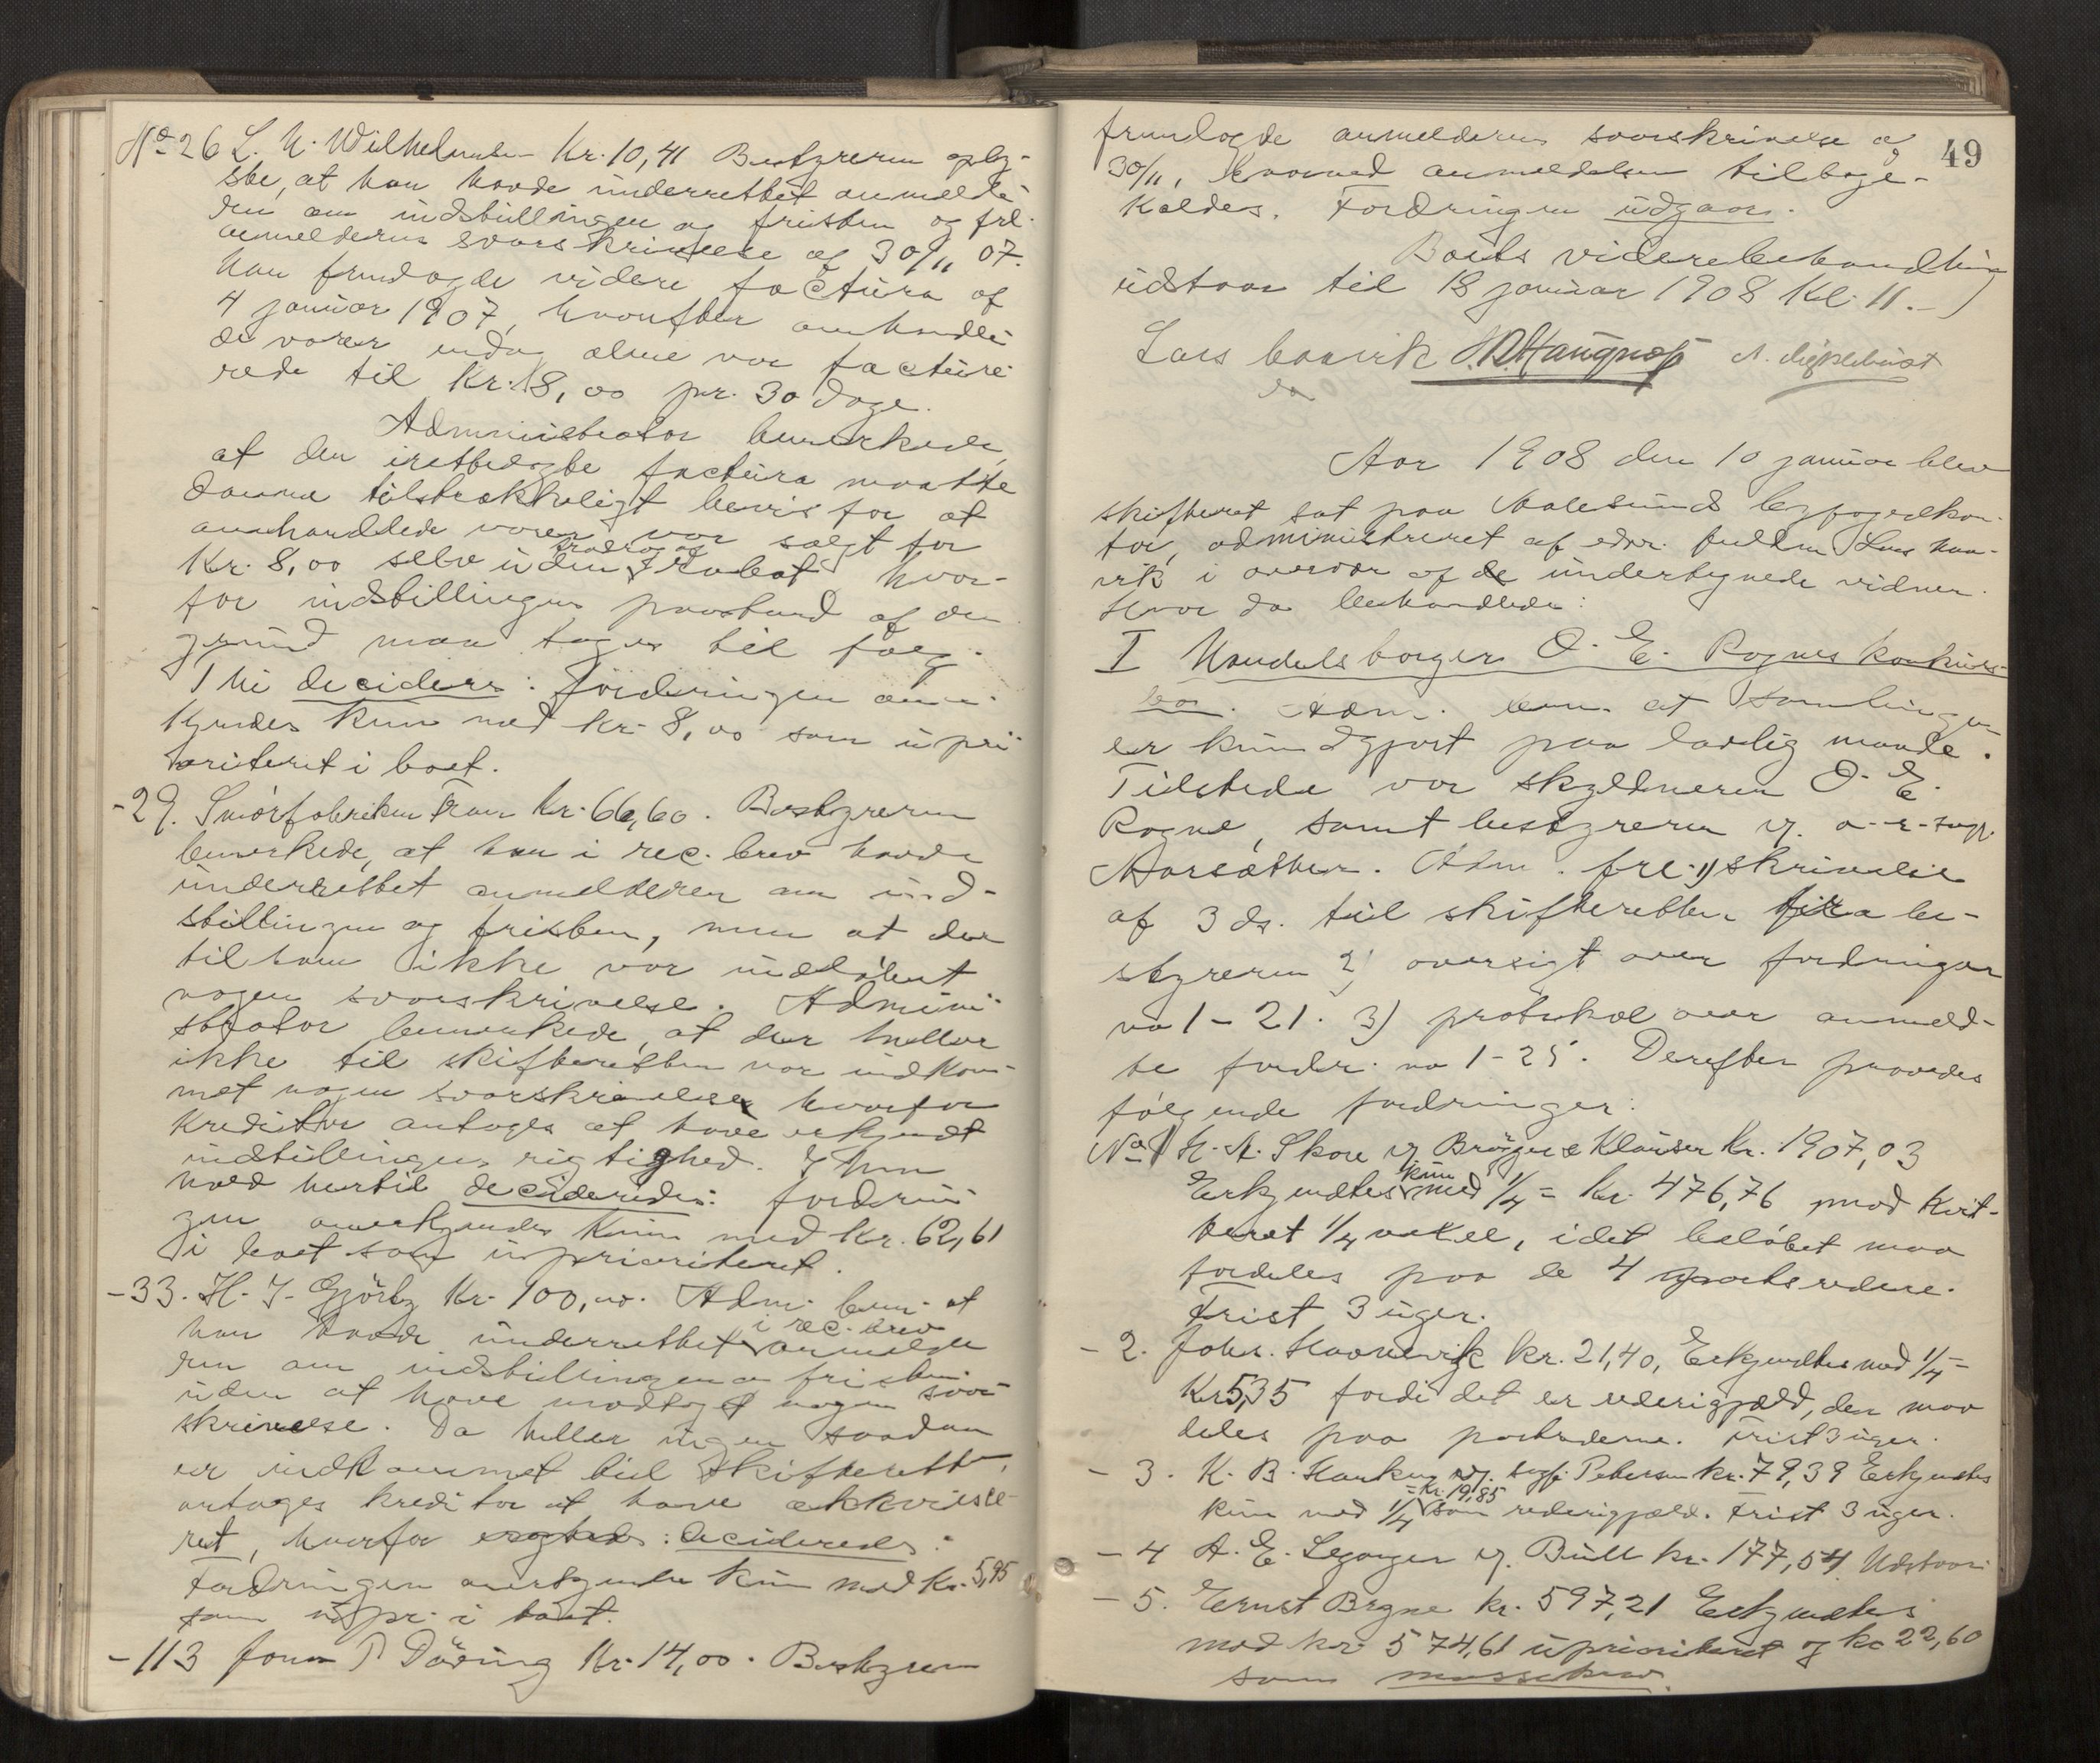 No 26 L. N. Wilhelmsen Kr. 10,41 Bestyreren oply-
ste, at han havde underrettet anmelde-
ren om indstillingen og fristen og frl.
anmelderens svarskrivelse af 30/11 07.
han fremlagde videre factura af
4 januar 1907, hvorefter omhandle-
de varer endog alene var facture-
rede til Kr. 8,00 pr. 30 dage.
Administrator bemerkede,
at den iretlelagte factura maatte
danne tilstrækkeligt bevis for at
omhandlede varer var solgt for
Kr. 8,00 selv uden fradrag af rabat hvor-
for indstillingens paastand af den
grund maa tages til følge.
Thi decideres: Fordringen aner-
kjendes kun med kr. 8,00 som upri-
oriteret i boet.
- 29. Smörfabriken Fram Kr. 66,60. Bestyreren
bemerkede, at han i rec. brev havde
underrettet anmelderen om ind-
stillingen og fristen, men at der
til ham ikke var indløbet
nogen svarskrivelse. Admini-
strator bemerkede, at der heller
ikke til skifteretten var indkom-
met nogen svarskrivelse hvorfor
kreditor antages at have erkjendt
indstillingens rigtighed. I hen-
hold hertil decideredes: fordrin-
gen anerkjendes kun med Kr. 62,61
i boet som uprioriteret.
- 33. H. J. Gjörtz Kr. 100,00. Adm. bem. at
han havde underrettet i rec. brev anmelde
ren om indstillingen og fristen
uden at have modtaget nogen svar-
skrivelse. Da heller ingen saadan
er indkommet til skifteretten,
antages kreditor at have akkviesce-
ret, hvorfor : decideredes:
Fordringen anerkjendes kun med Kr. 5,95
som upr. i boet.
- 113 Döring Kr. 14,00. Bestyreren
49
fremlagde anmelderens svarskrivelse af
30/11, hvorved anmeldelsen tilbage-
kaldes. Fordringen udgaar.
Boets viderebehandling
udstaar til 18 januar 1908 Kl. 11.-
Lars
Aar 1908 den 10 januar blev
skifteret sat paa Aalesunds byfogedkon-
tor, administreret af edsv. fuldm. Lars
i overvær af de undertegnede vidner.
Hvor da behandledes:
I Handelsborger O. E. Rognes konkurs-
bo. Adm. bem. at samlingen
er kundgjort paa lovlig maade.
Tilstede var skyldneren O. E.
Rogne, samt bestyreren v. o-r-sagf.
Aarsæther. Adm. fre. 1) skrivelse
af 3 ds. til skifteretten fra be-
styreren 2) oversigt over fordringer
no 1 - 21. 3) protokol over anmeld-
te fordr. no 1 - 25. Derefter prøvedes
følgende fordringer:
No 1 M. A. Skare v. Brögger & Klauser Kr. 1907,03
Erkjendtes kun med 1/4 = kr. 476,76 mod kvit-
teret 1/4 vexel, idet beløbet maa
fordeles paa de 4 partsredere.
Frist 3 uger.
- 2. Johs. Kr. 21,40, Erkjendtes med 1/4 =
Kr 5,35 fordi det er rederigjæld, der maa
deles paa partrederne. Frist 3 uger.
- 3. K. B. v. sagf. Petersen kr. 79,39 Erkjendtes
kun med 1/4 = Kr. 19,85 som rederigjæld. Frist 3 uger.
- 4 A. E. v. Bull kr. 177,54 Udstaar.
- 5. Ernst Brgne kr. 597,21 Erkjendtes
med kr. 574,61 uprioriteret og kr 22,60
som massekrav.